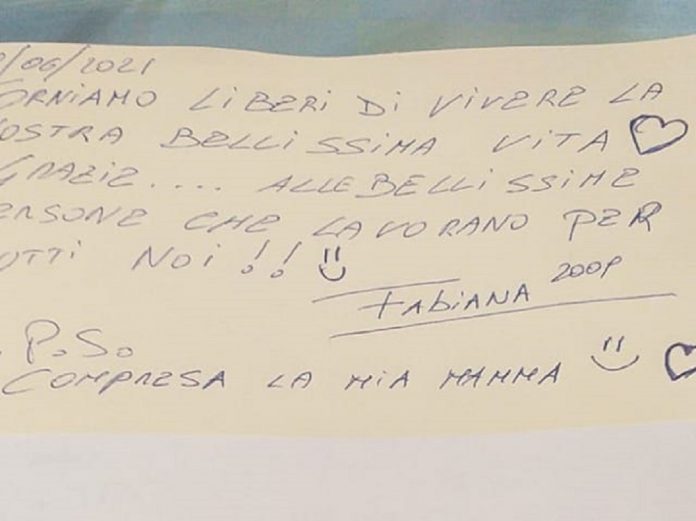 /06/2021
TORNIAMO LIBERI DI VIVERE LA
NOSTRA BELLISSIMA VITA
GRAZIE.... ALLE BELLISSIME
PERSONE CHE LAVORANO PER
TUTTI NOI!!
FABIANA
P.S.
COMPRESA LA MIA MAMMA